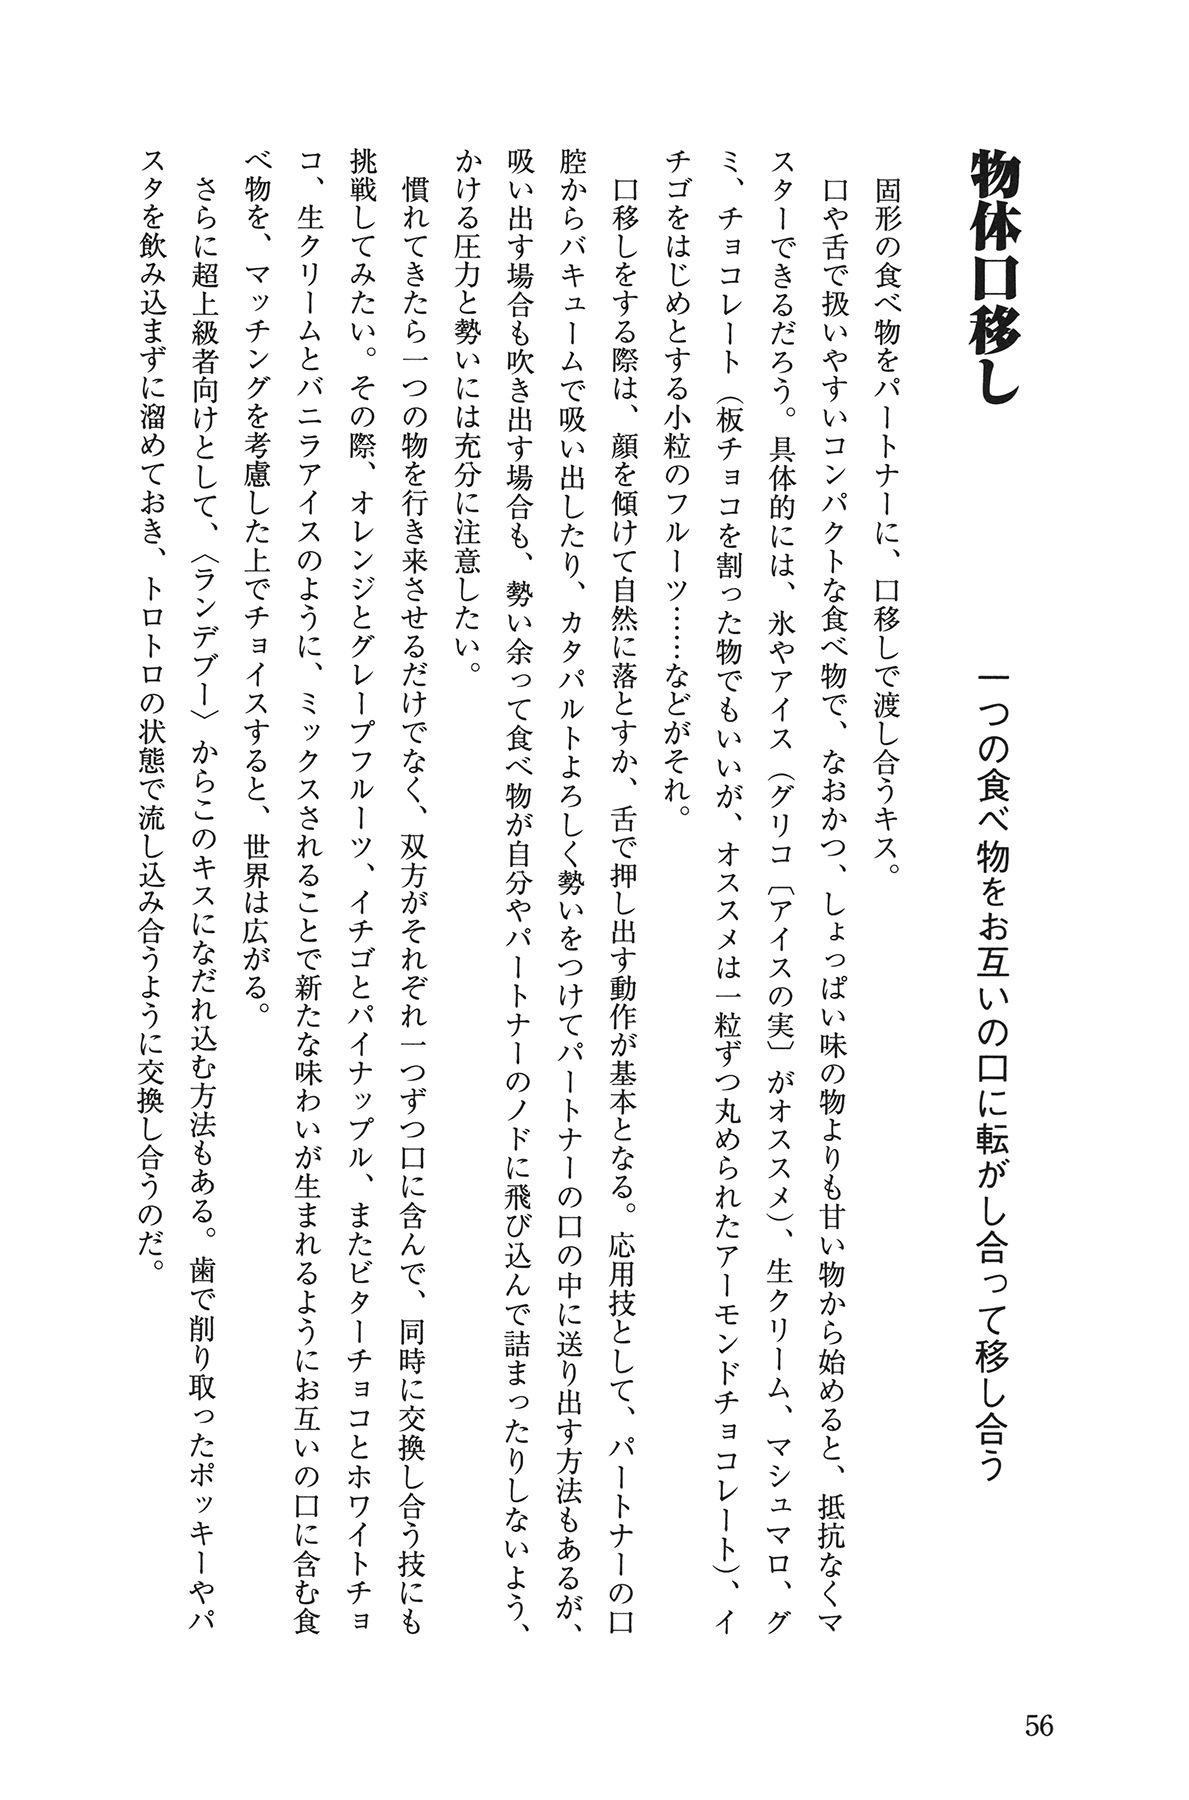 物体口移し
一つの食べ物をお互いの口に転がし合って移し合う
固形の食べ物をパートナーに、口移しで渡し合うキス。
口や舌で扱いやすいコンパクトな食べ物で、なおかつ、しょっぱい味の物よりも甘い物から始めると、抵抗なくマ
スターできるだろう。具体的には、氷やアイス（グリコ〔アイスの実〕がオススメ）、生クリーム、マシュマロ、グ
ミ、チョコレート（板チョコを割った物でもいいが、オススメは一粒ずつ丸められたアーモンドチョコレート）、イ
チゴをはじめとする小粒のフルーツ……などがそれ。
口移しをする際は、顔を傾けて自然に落とすか、舌で押し出す動作が基本となる。応用技として、パートナーの口
腔からバキュームで吸い出したり、カタパルトよろしく勢いをつけてパートナーの口の中に送り出す方法もあるが、
吸い出す場合も吹き出す場合も、勢い余って食べ物が自分やパートナーのノドに飛び込んで詰まったりしないよう、
かける圧力と勢いには充分に注意したい。
慣れてきたら一つの物を行き来させるだけでなく、双方がそれぞれ一つずつ口に含んで、同時に交換し合う技にも
挑戦してみたい。その際、オレンジとグレープフルーツ、イチゴとパイナップル、またビターチョコとホワイトチョ
コ、生クリームとバニラアイスのように、ミックスされることで新たな味わいが生まれるようにお互いの口に含む食
べ物を、マッチングを考慮した上でチョイスすると、世界は広がる。
さらに超上級者向けとして、〈ランデブー〉からこのキスになだれ込む方法もある。歯で削り取ったポッキーやパ
スタを飲み込まずに溜めておき、トロトロの状態で流し込み合うように交換し合うのだ。
56